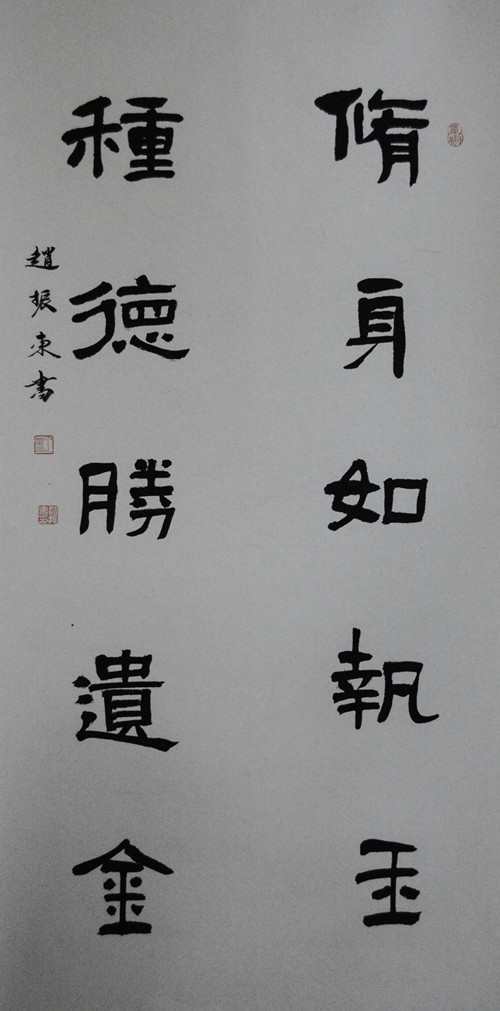 脩身如執玉
種德勝遺金
趙振東書